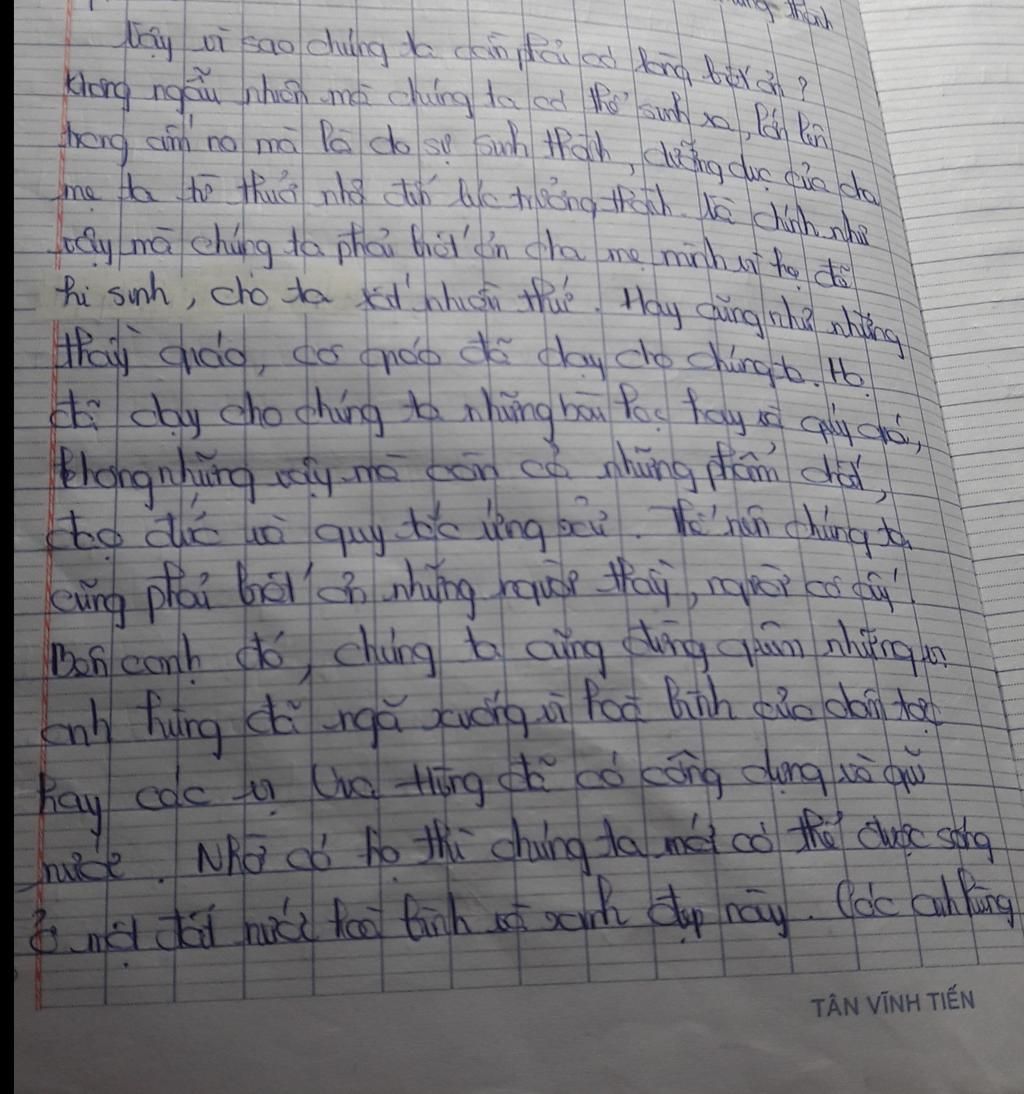 thành
Vậy vì sao chúng ta cần phải có lòng biết ơn?
Không ngẫu nhiên mà chúng ta có thể sinh ra, lớn lên
trong ấm no mà là do sự sinh thành, dưỡng dục của cha
mẹ ta từ thuở nhỏ đến lúc trưởng thành. Và chính như
vậy mà chúng ta phải biết ơn cha mẹ mình vì họ đã
hi sinh, cho ta rất nhiều thứ. Hay cũng như những
thầy giáo, cô giáo đã dạy cho chúng ta. Họ
đã dạy cho chúng ta những bài học hay và quý giá,
không những vậy mà còn cả những phẩm chất,
đạo đức và quy tắc ứng xử. Thế nên chúng ta
cũng phải biết ơn những người thầy, người cô ấy
Bên cạnh đó, chúng ta cũng đừng quên những vị
anh hùng đã ngã xuống vì hoà bình của dân tộc
hay các vị Vua Hùng đã có công dựng và giữ
nước. Nhờ có họ thì chúng ta mới có thể được sống
ở một đất nước hoà bình và xanh đẹp này. Các anh hùng
TÂN VĨNH TIẾN